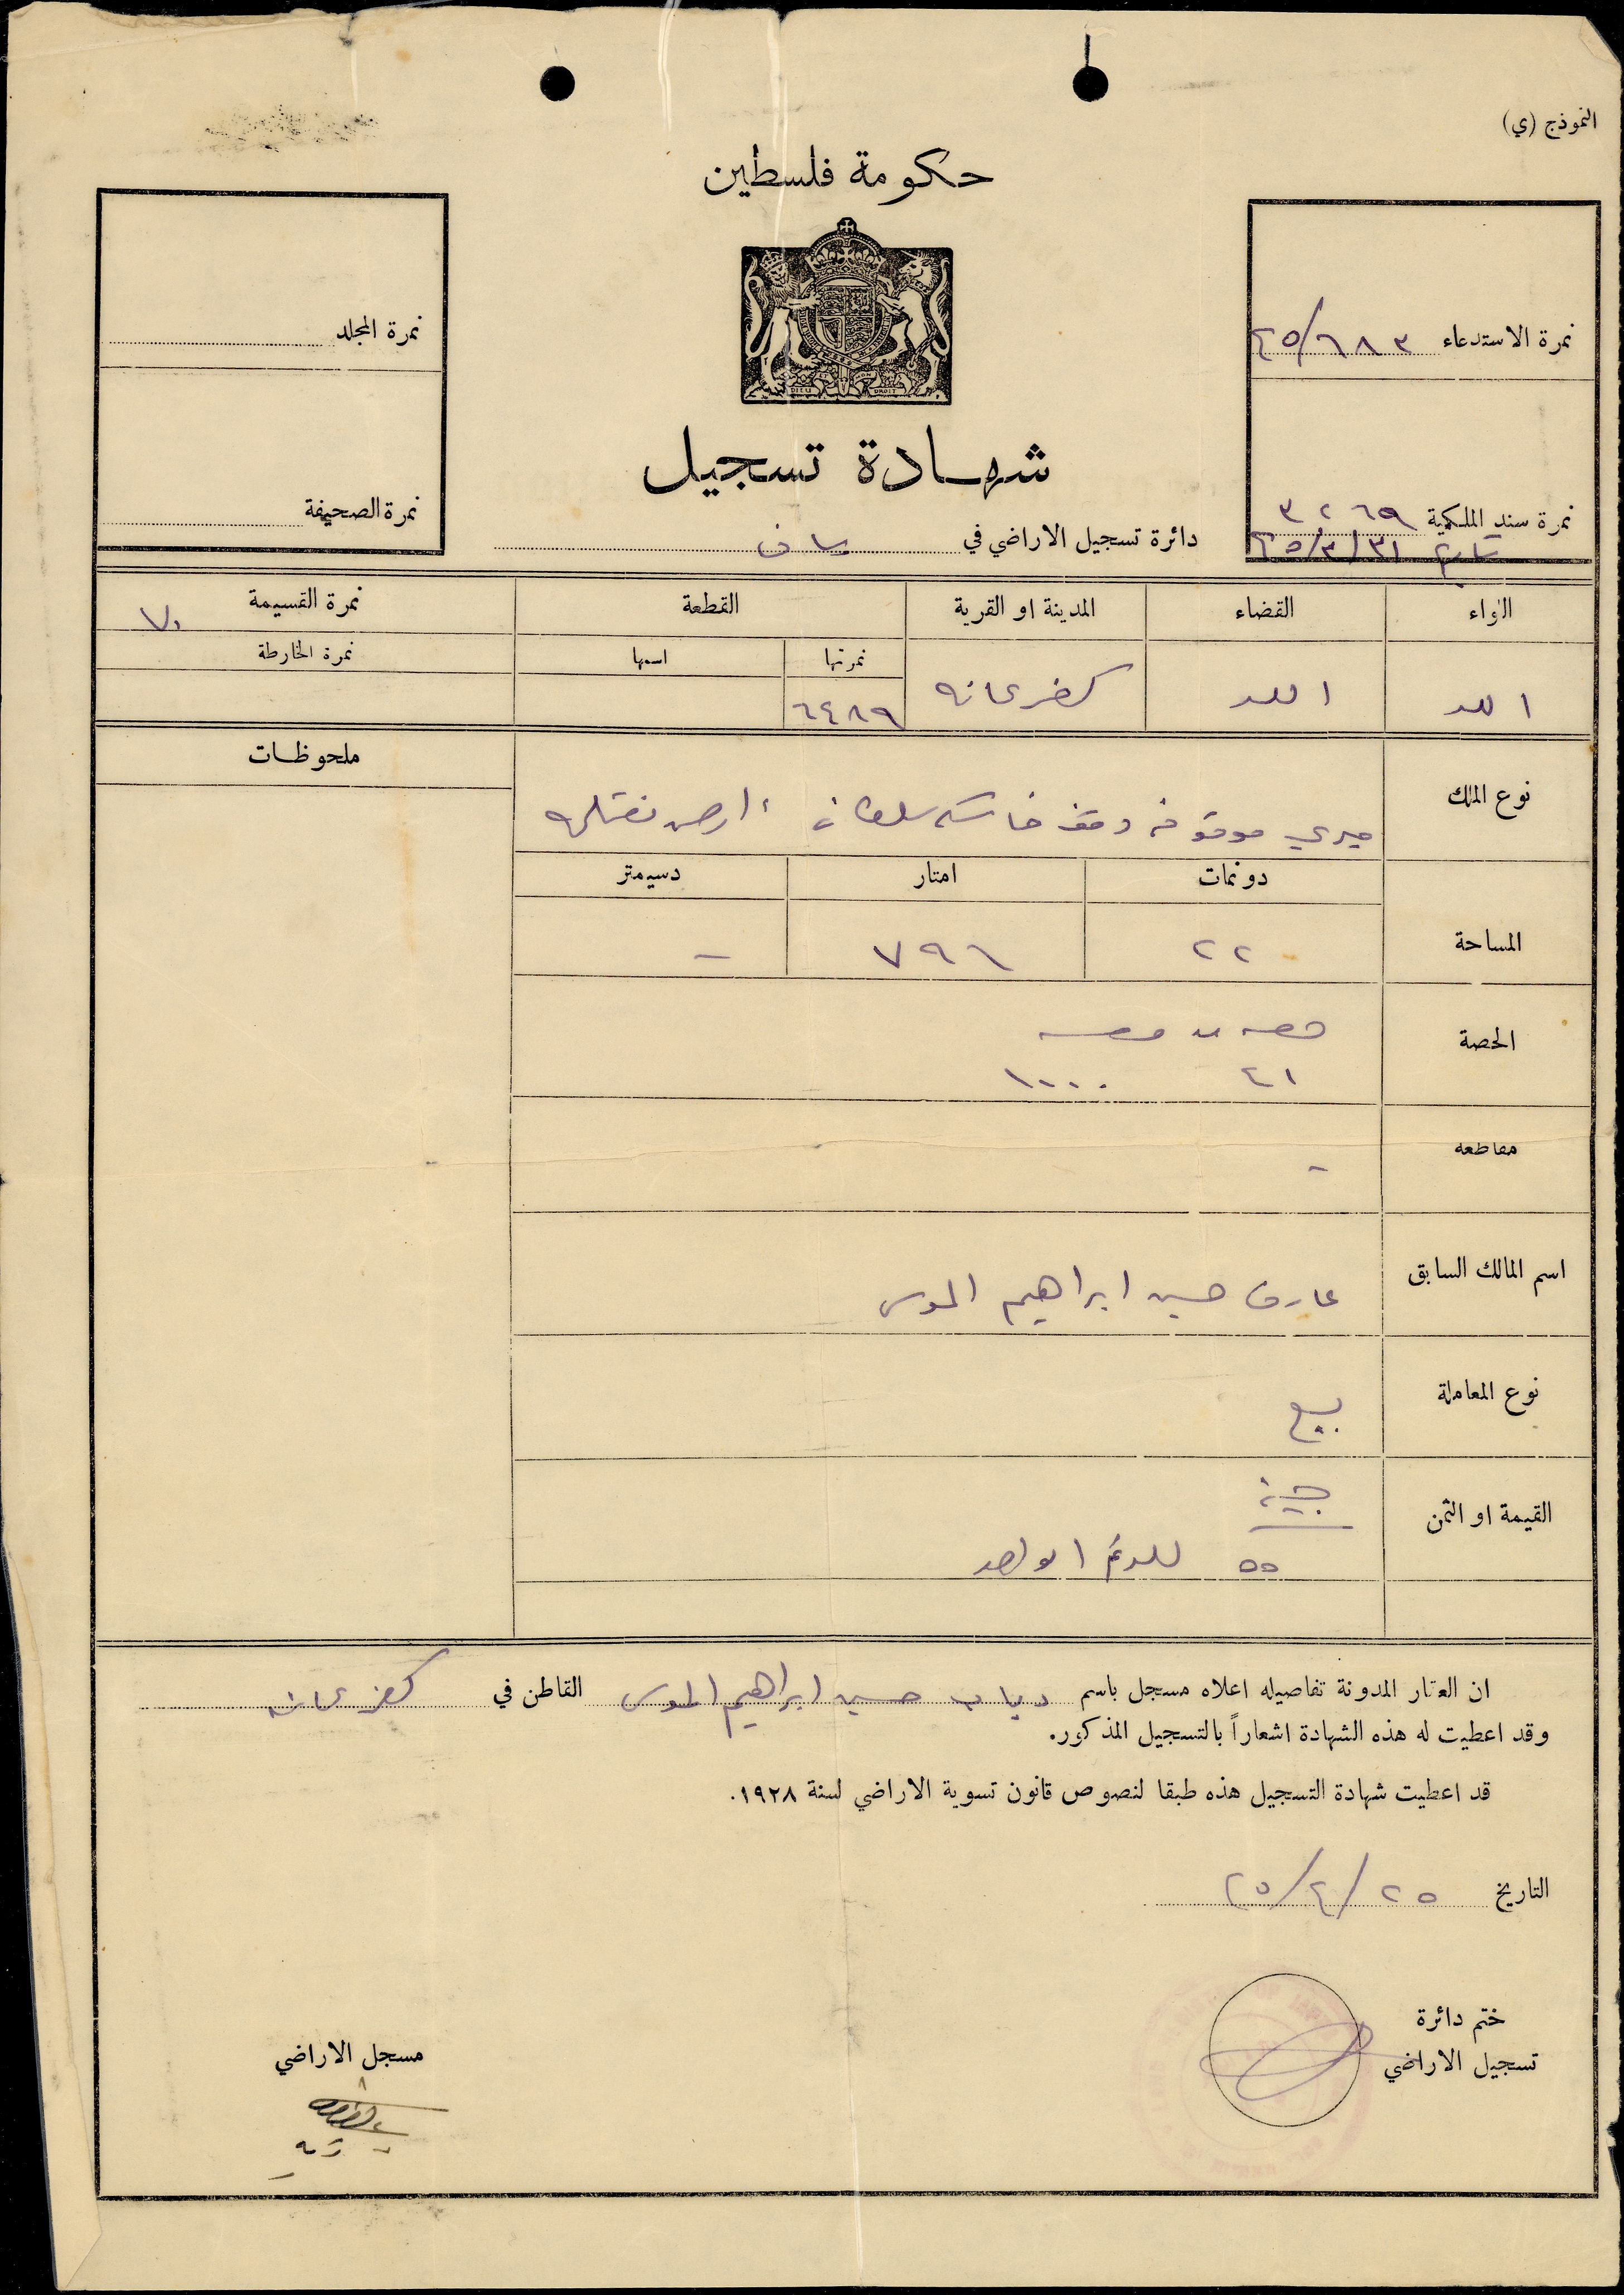 النموذج (ي)
حكومة فلسطين
DIEU DROIT
شهادة تسجيل
دائرة تسجيل الاراضي في يافا
نمرة الاستدعاء ٦٨٣/٤٥
نمرة سند الملكية ٣٢٦٩
تاريخ ٣١/٣/٤٥
نمرة المجلد
نمرة الصحيفة
اللواء القضاء المدينة او القرية القطعة نمرة القسيمة ٧٠
نمرتها اسمها نمرة الخارطة
اللد اللد كفرعانه ٦٤٨٩
نوع الملك ميري موقوفه وقف خاسكي سلطان، ارض
ملحوظات
دونمات امتار دسيمتر
المساحة ٢٢ ٧٩٦ -
الحصة حصه من حصه
٤١ ١٠٠٠٠
مقاطعه -
اسم المالك السابق عارف حسين ابراهيم الموسى
نوع المعاملة بيع
القيمة او الثمن جنيه
٥٥ للدونم الواحد
ان العقار المدونة تفاصيله اعلاه مسجل باسم دياب حسين ابراهيم الموسى القاطن في كفرعانه
وقد اعطيت له هذه الشهادة اشعاراً بالتسجيل المذكور.
قد اعطيت شهادة التسجيل هذه طبقا لنصوص قانون تسوية الاراضي لسنة ١٩٢٨.
التاريخ ٢٥/٤/٤٥
ختم دائرة
تسجيل الاراضي
مسجل الاراضي